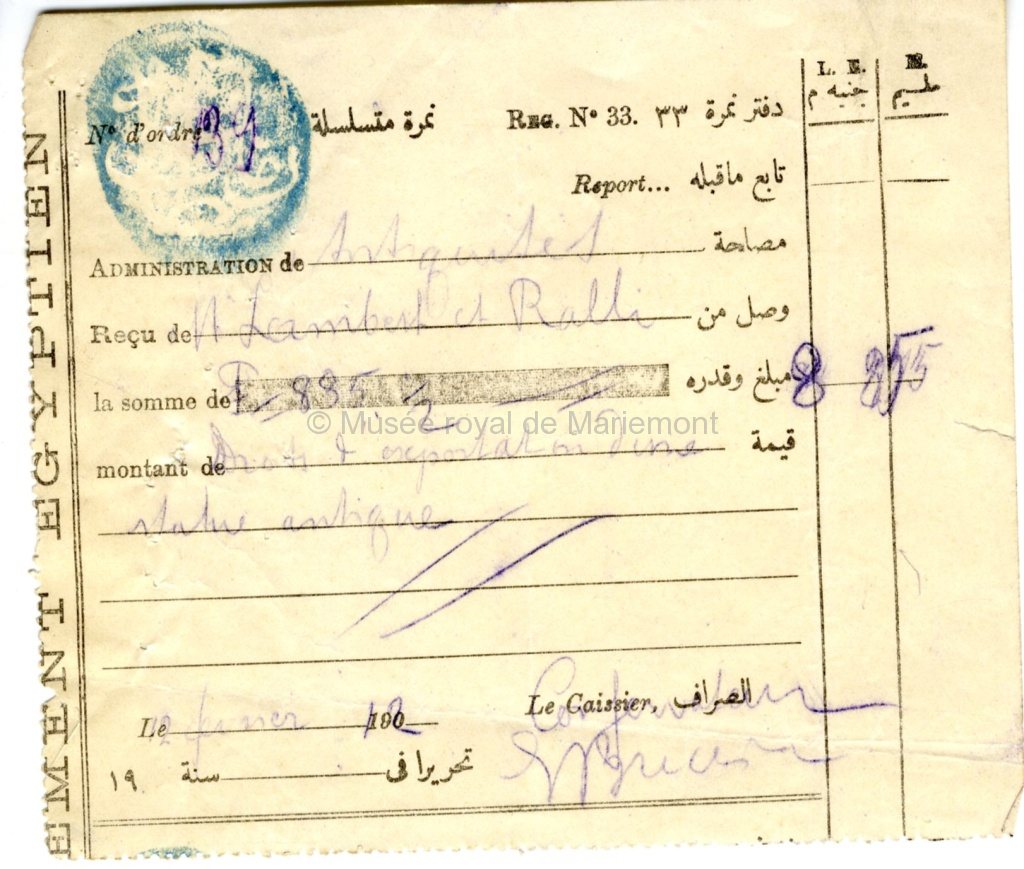 EMENT EGYPTIEN
L. E. M.
جنيه م مليم
N° d'ordre 39 نمرة متسلسلة REG. N° 33. دفتر نمرة ٣٣
Report... تابع ماقبله
ADMINISTRATION de Antiquités مصلحة
Reçu de Mr Lambert et Ralli وصل من
la somme de 885 مبلغ وقدره 8
© Musée royal de Mariemont
montant de Droits d'exportation d'une قيمة
statue antique
Le Caissier, الصراف
Le 2 fevrier 1912
تحريرا فى سنة ١٩